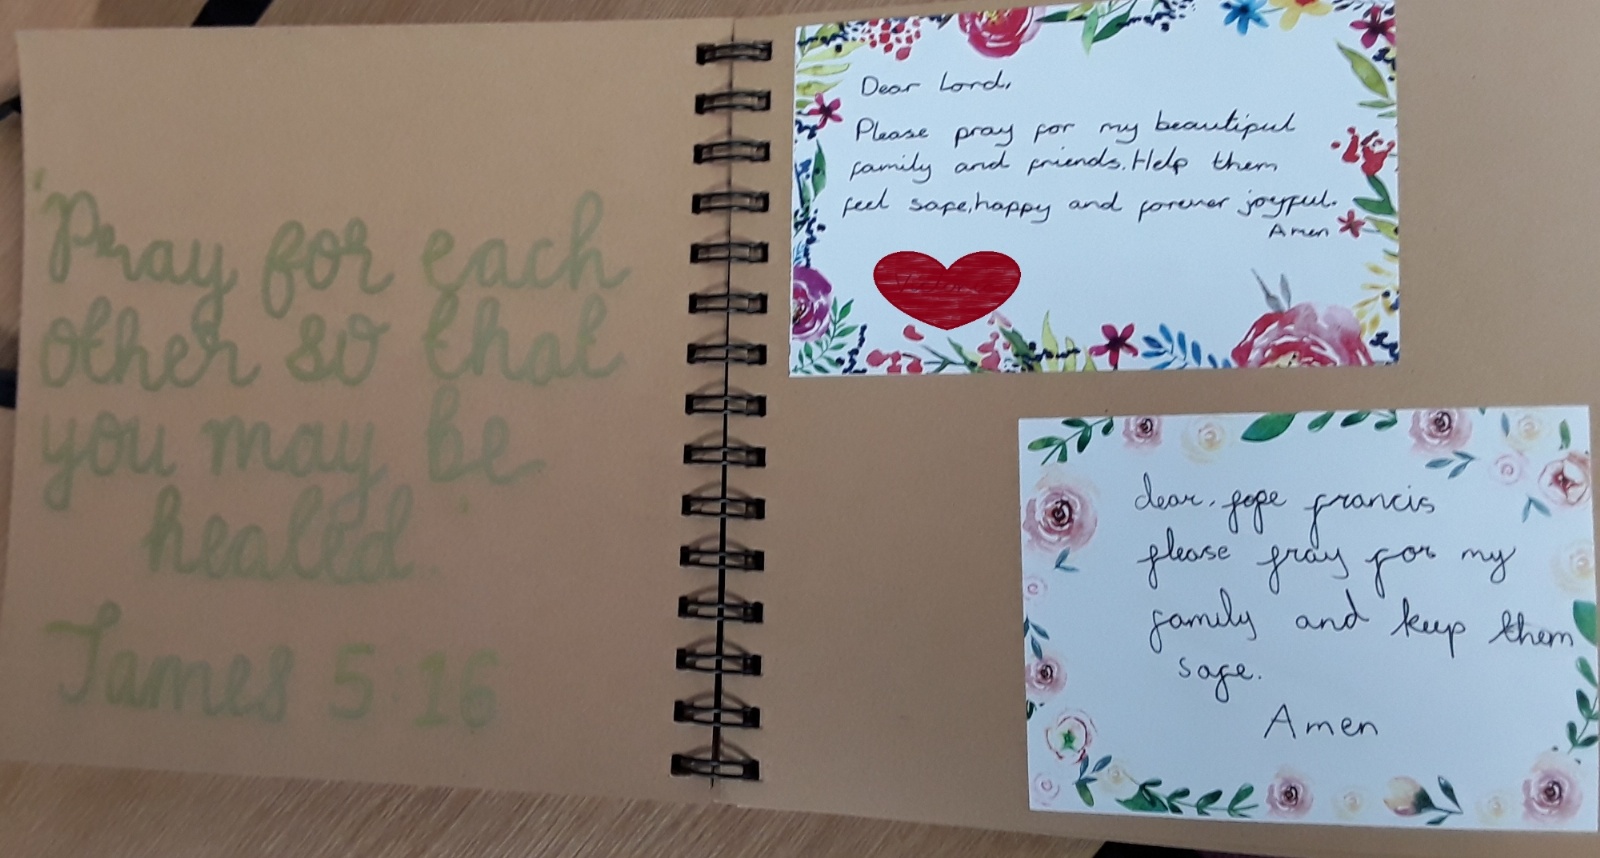 Pray for each
other so that
you may be
healed.
James 5:16
Dear Lord,
Please pray for my beautiful
family and friends. Help them
feel safe, happy and forever joyful.
Amen
dear, pope francis
please pray for my
family and keep them
safe.
Amen